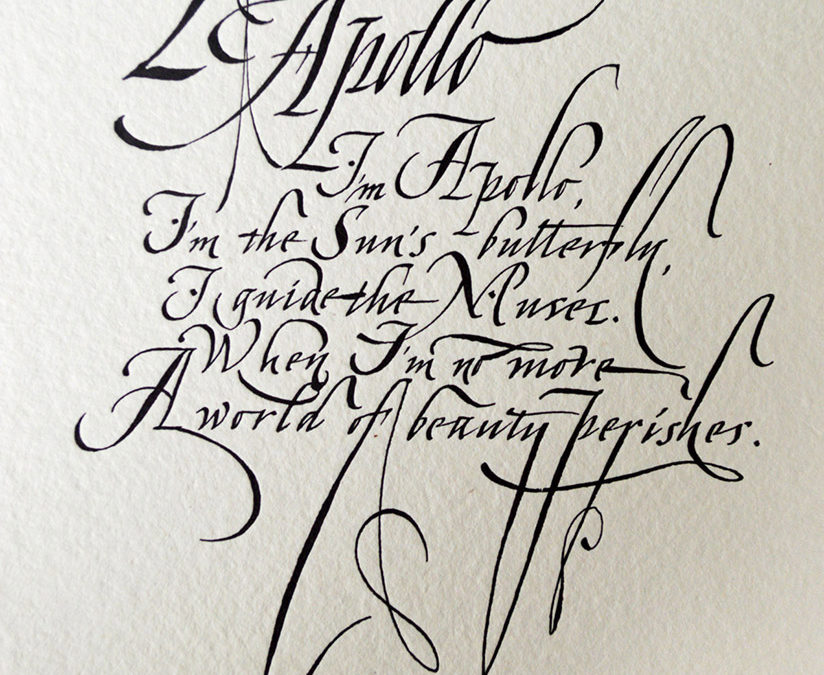 L'Apollo
I'm Apollo,
I'm the Sun's butterfly,
I guide the Muses.
When I'm no more
A world of beauty perishes.